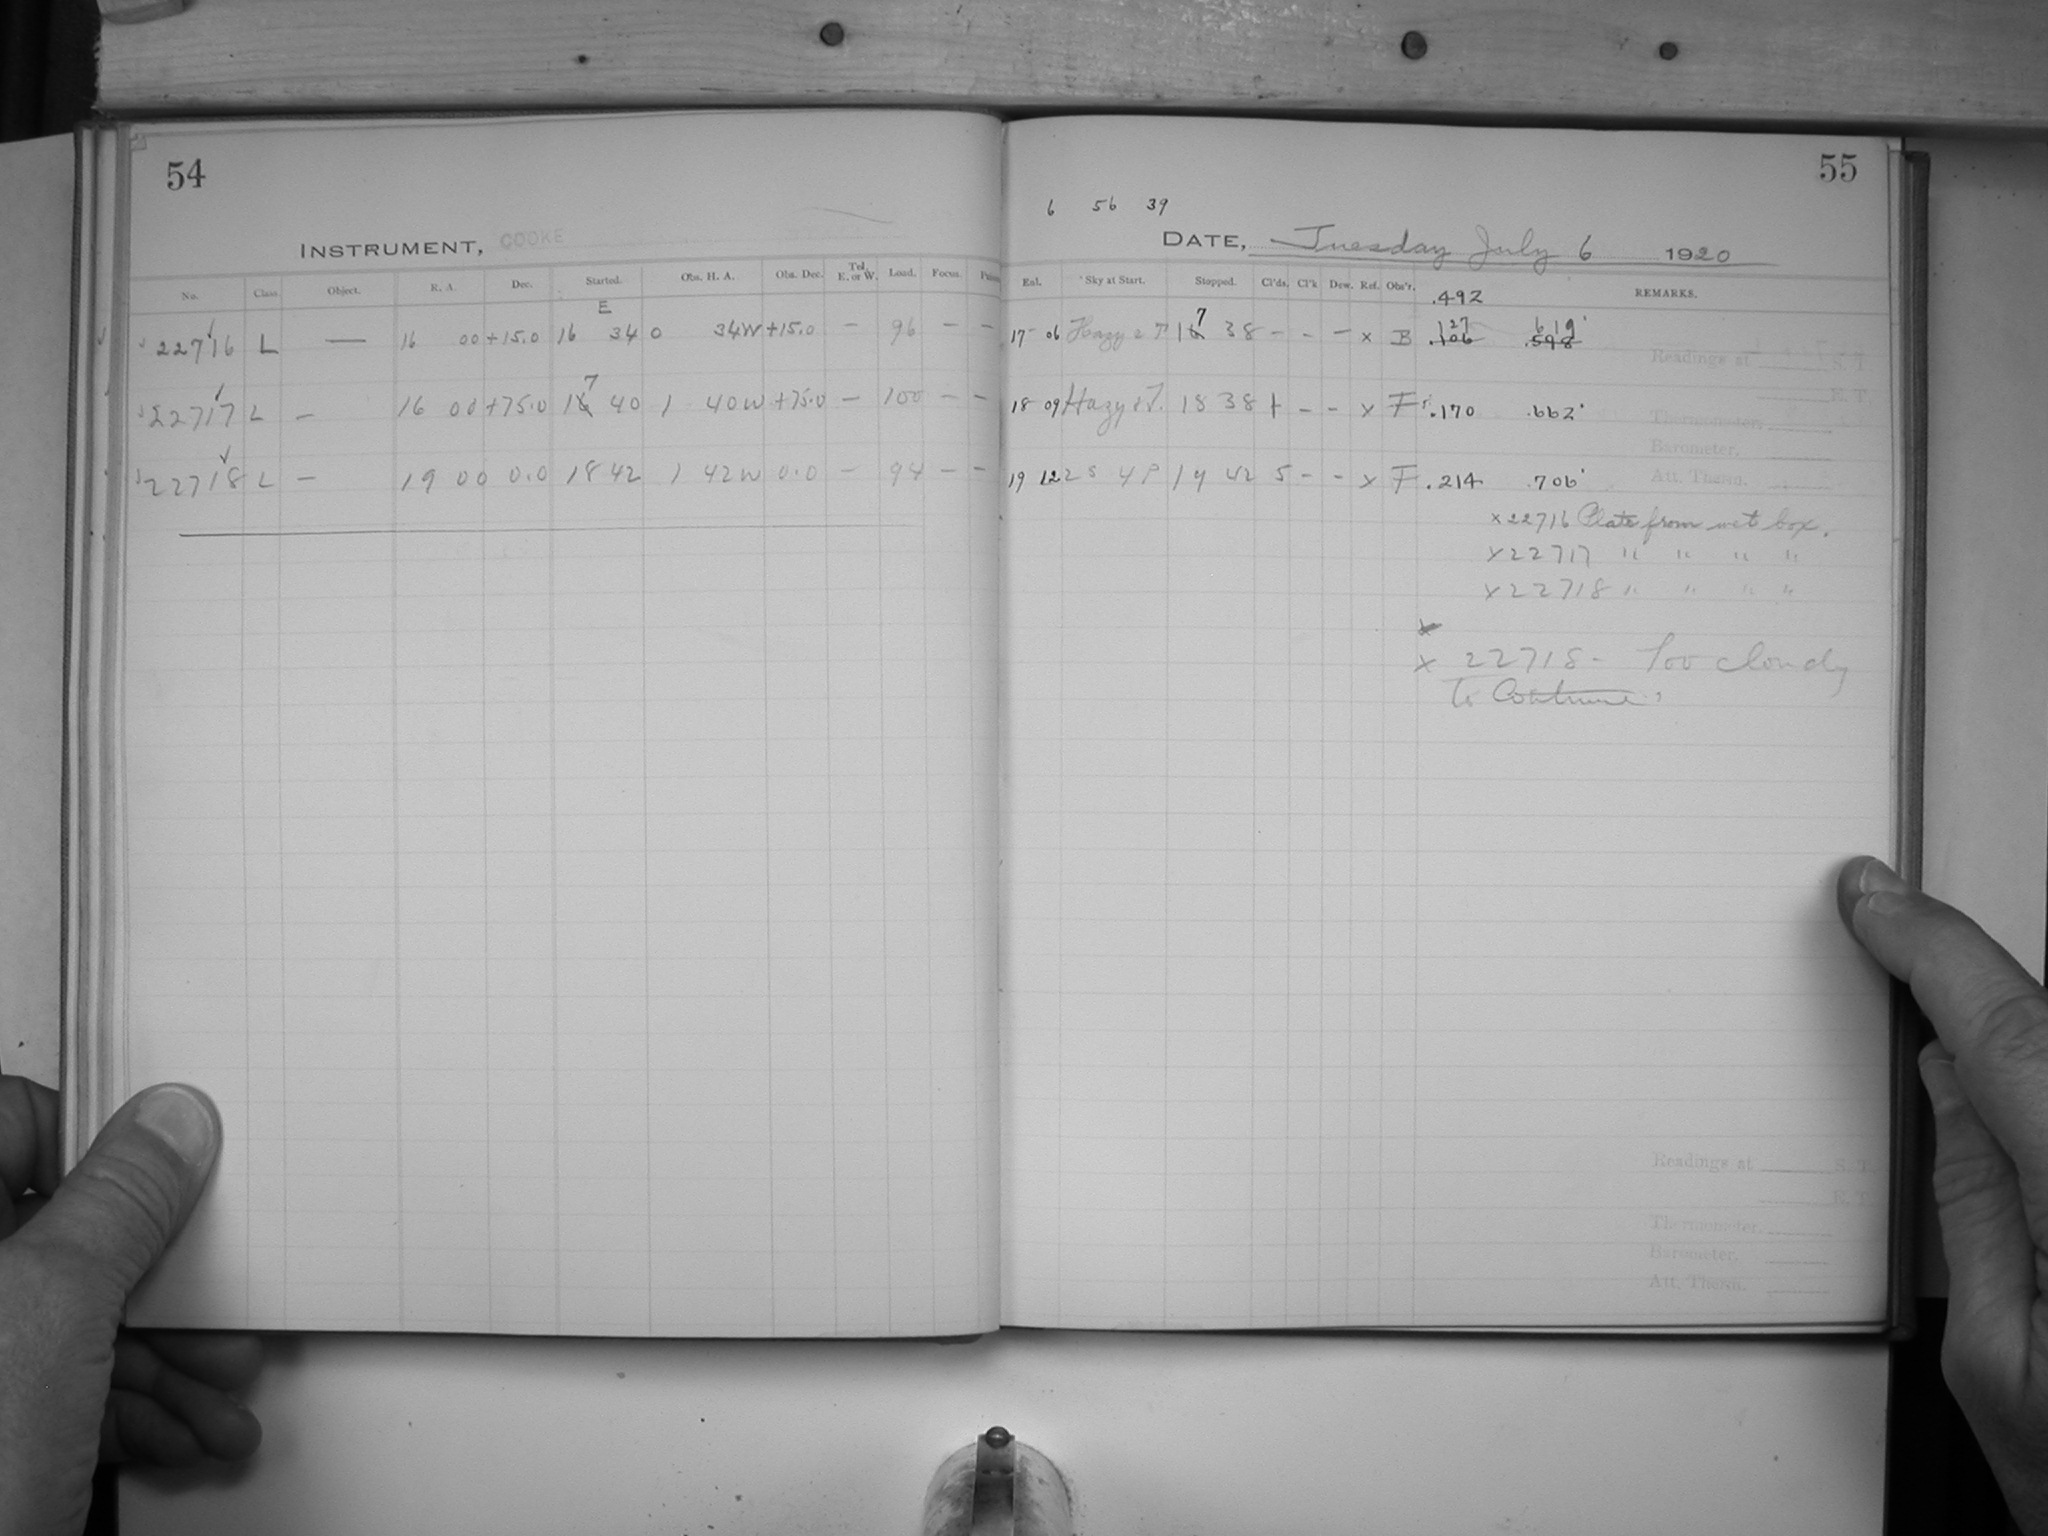 54
INSTRUMENT, COOKE
No. Class. Object. R. A. Dec. Started. Obs. H. A. Obs. Dec. Tel. E. or W. Load. Focus.
E
22716 L — 16 00 +15.0 16 34 0 34W +15.0 — 96 — —
7
22717 L — 16 00 +75.0 16 40 1 40W +75.0 — 100 — —
22718 L — 19 00 0.0 18 42 1 42W 0.0 — 94 — —
55
6 56 39
DATE, Tuesday July 6 1920
Eol. Sky at Start. Stopped. Cl'ds. Cl'k Dew. Ref. Obs'r. REMARKS.
.492
7 .127 .619
17 06 Hazy 16 38 – – – x B .106 .598
18 09 Hazy 18 38 – – x F .170 .662
19 12 2S 4P 19 42 5 – – x F .214 .706
x 22716 Plate from wet box.
x 22717 " " " "
x 22718 " " " "
x
x 22718 - Too cloudy
to Continue.
Readings at S. T.
E. T.
Thermometer,
Barometer,
Att. Therm.
Readings at S. T.
E. T.
Thermometer,
Barometer,
Att. Therm.